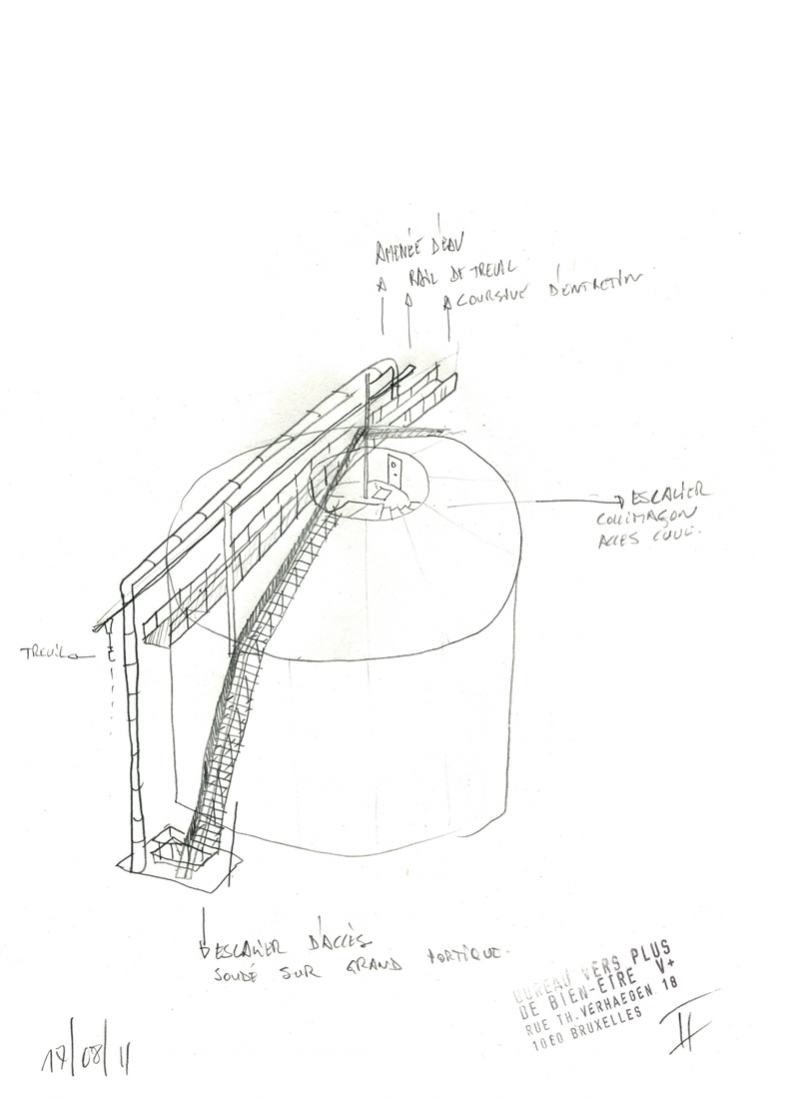 AMENÉE D'EAU
RAIL DE TREUIL
COURSIVE D'ENTRETIEN
ESCALIER
COLIMAÇON
ACCES CUVE.
TREUIL
ESCALIER D'ACCÈS
SOUDÉ SUR GRAND PORTIQUE.
BUREAU VERS PLUS
DE BIEN-ETRE V+
RUE TH. VERHAEGEN 18
1060 BRUXELLES
17/08/11